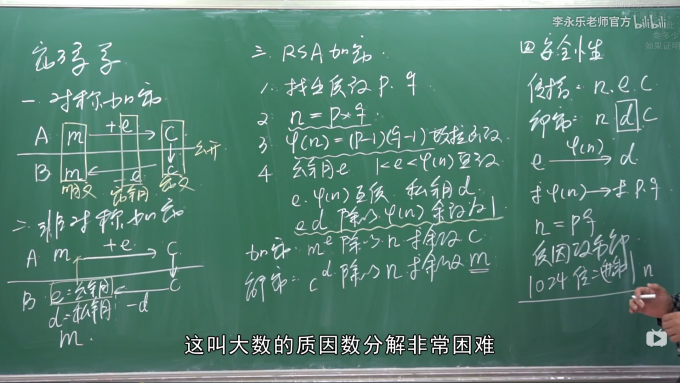 李永乐老师官方 bilibili
密码学
一.对称加密
A m +e c
B m -e c 公开
明文 密钥 密文
二.非对称加密
A m +e c
B e=公钥 c
d=私钥 -d
m.
三 RSA加密
1. 找出质数 P. q
2. n=P×q
3 φ(n)=(P-1)(q-1) 欧拉函数
4 公钥e 1<e<φ(n) 互质
e.φ(n)互质 私钥d.
ed 除以φ(n)余数为1
加密: m^e 除以 n 求余数 c
解密: c^d 除以 n 求余数 m
四安全性
传播: n.e.c
解密: n d c
e φ(n) d
求φ(n)→求 P.q
n=Pq
质因数分解
1024位二进制 n
这叫大数的质因数分解非常困难